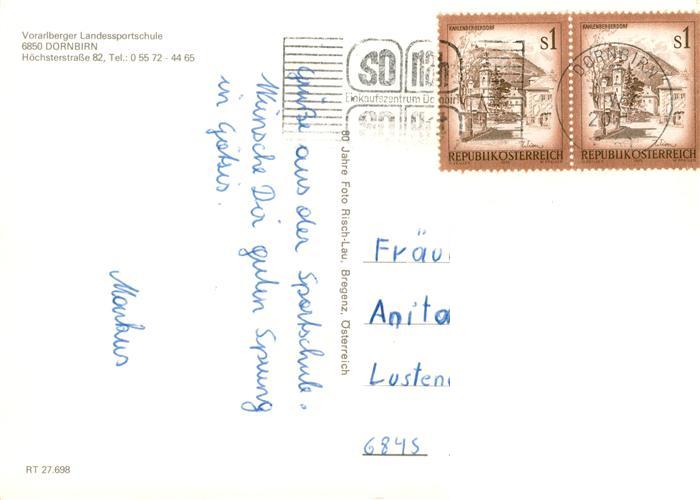 Vorarlberger Landessportschule
6850 DORNBIRN
Höchsterstraße 82, Tel.: 0 55 72 - 44 65
Grüße aus der Sportschule.
Wünsche Dir guten Sprung
in Götzis.
Markus
80 Jahre Foto Risch-Lau, Bregenz, Österreich
RT 27.698
Einkaufszentrum Dornbirn
KAHLENBERGERDORF
s1
REPUBLIK ÖSTERREICH
KAHLENBERGERDORF
s1
REPUBLIK ÖSTERREICH
DORNBIRN
Fräu
Anita
Lusten
6845